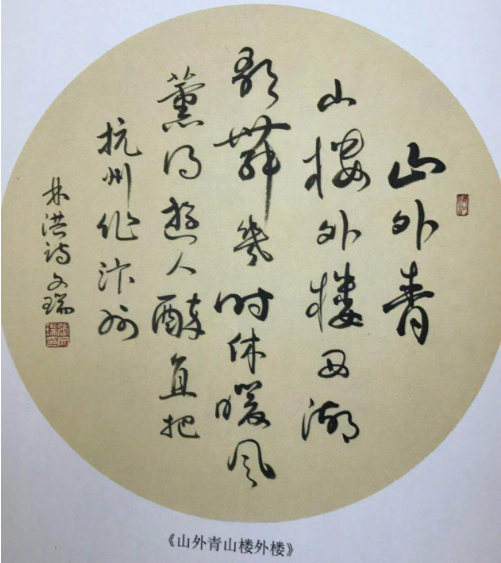 山外青
山楼外楼西湖
歌舞幾时休暖风
薰得遊人醉直把
杭州作汴州
林洪诗文瑞
《山外青山楼外楼》